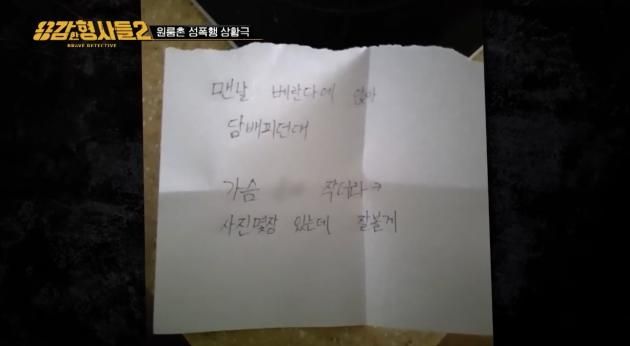 용감한형사들2
BRAVE DETECTIVE
원룸촌 성폭행 상황극
맨날 베란다에 앉아
담배피던대
가슴 작더라ㅋ
사진몇장 있는데 잘볼게